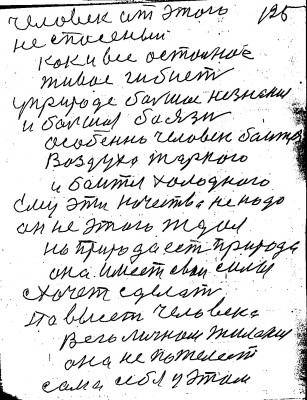 человек от этого 126
не спосеный
как и все остоное
живое гибнет
у природе болшое незнени
и болшая боязн
особенно человек боится
воздуха жаркого
и боится холодного
ему эти качества не надо
он не этого ждал
но природа ест природа
она имеет свои силы
схочет сделат
человека
она не пожелает
сама себя у этом